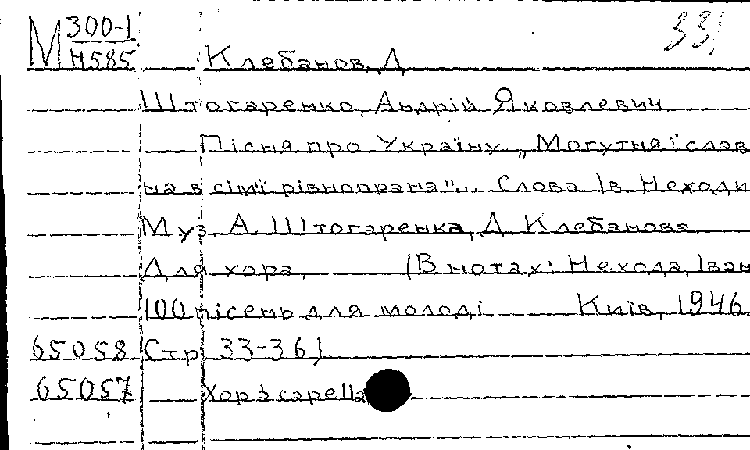 М 300-1 331
Н585 Клебанов, Д
Штогаренко, Андрій Яковлевич
Пісня про Україну „Могутня і слав
на в сім'ї рівноправна"... Слова Ів. Неходи
Муз А. Штогаренка, Д Клебанова
Для хора, (В нотах: Нехода, Іван
100 пісень для молоді Київ, 1946
65058 Стр 33-36)
65057 Хор a capella